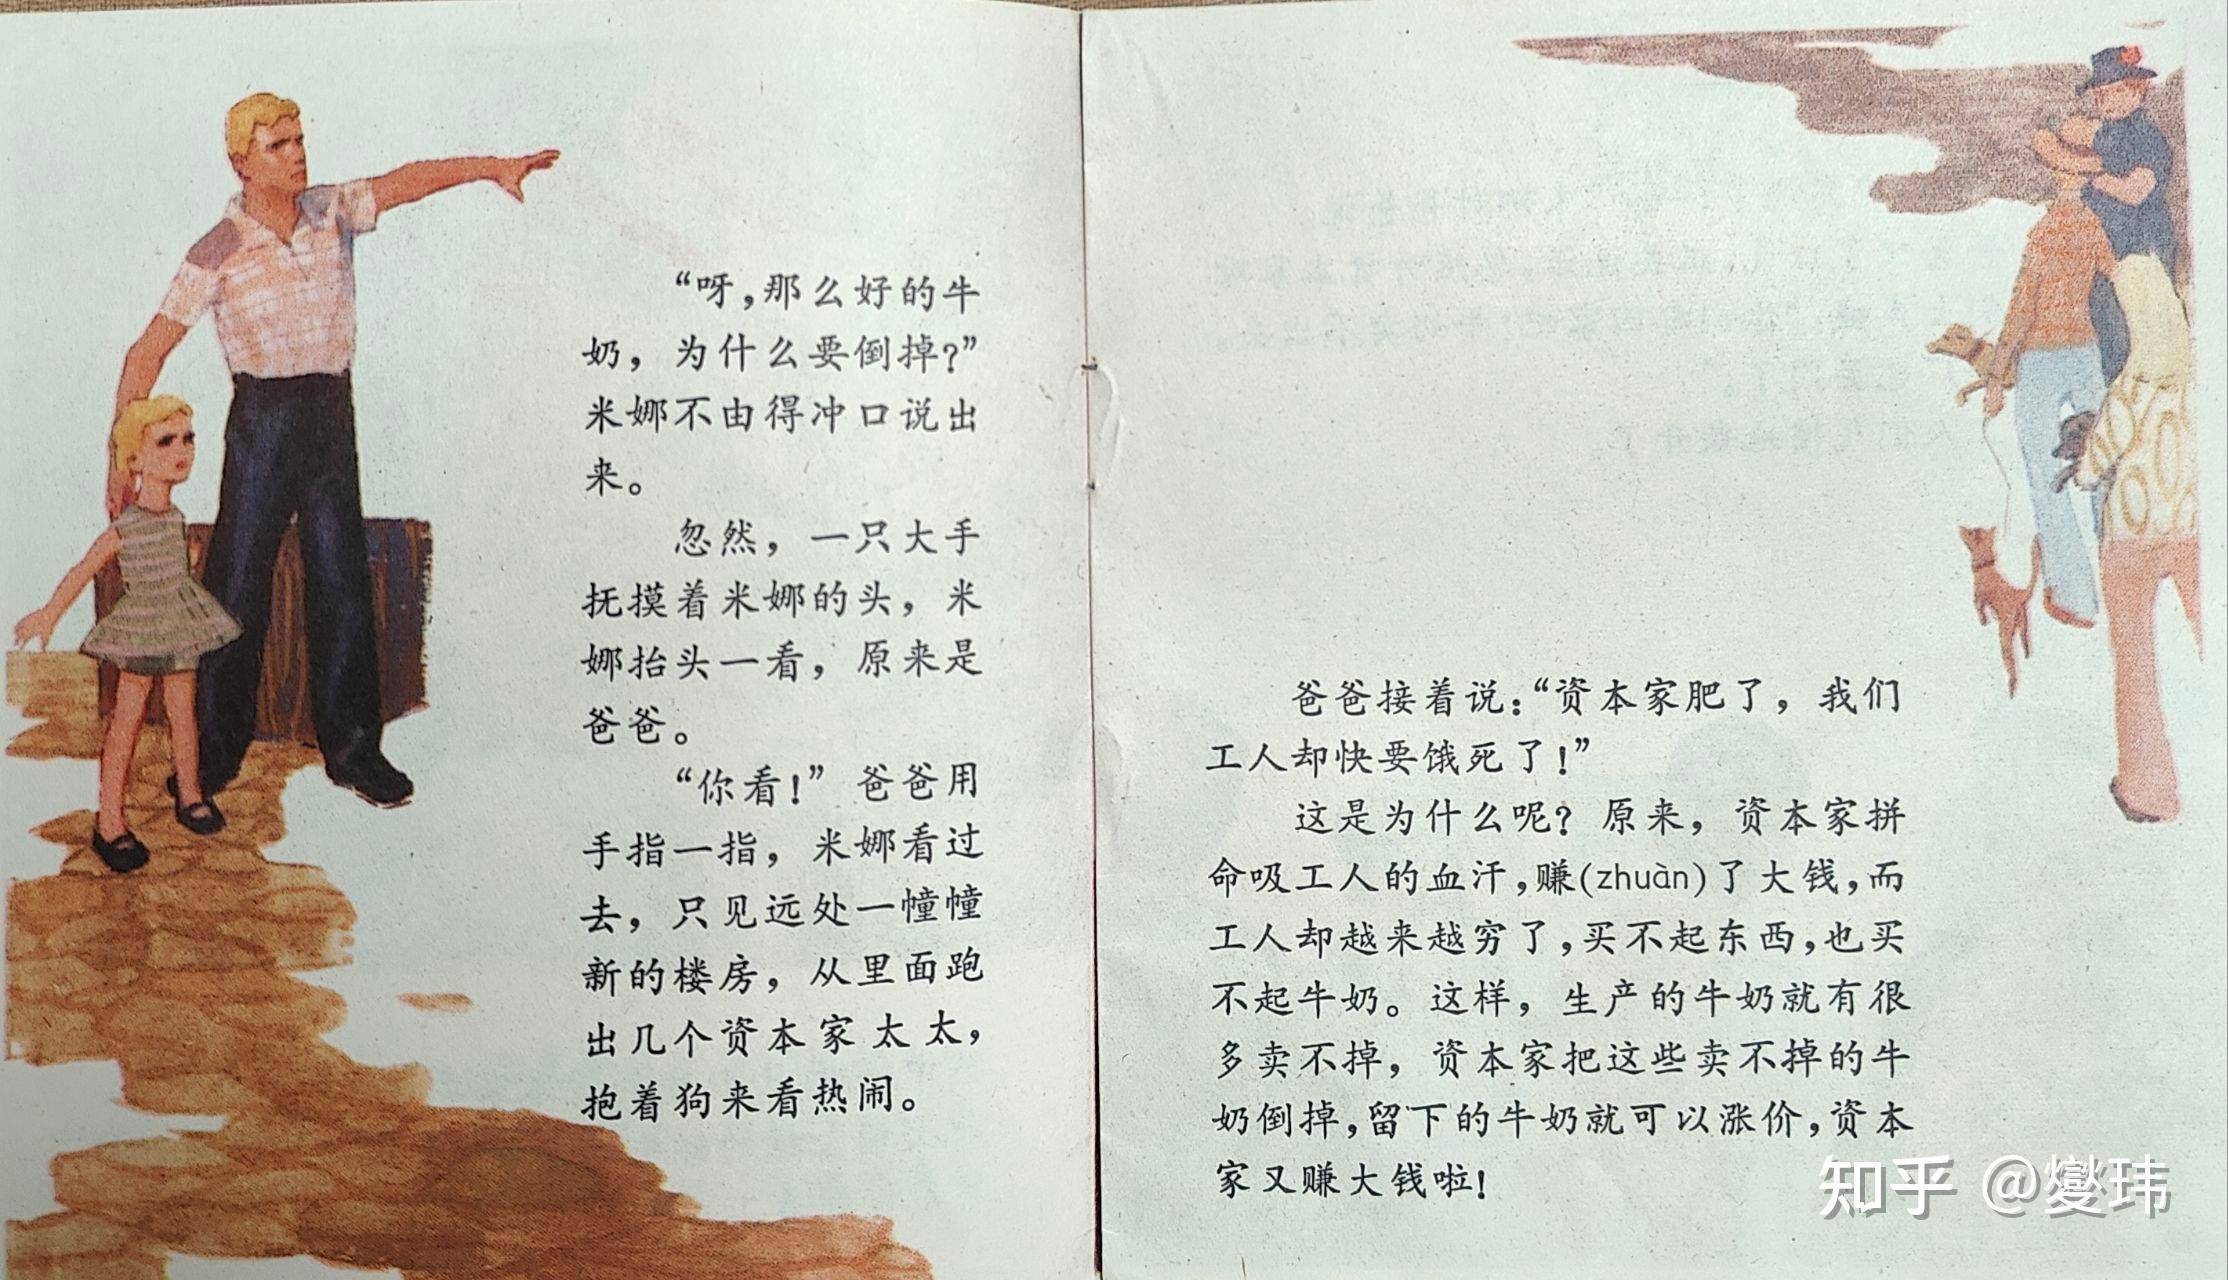 “呀，那么好的牛
奶，为什么要倒掉？”
米娜不由得冲口说出
来。
忽然，一只大手
抚摸着米娜的头，米
娜抬头一看，原来是
爸爸。
“你看！”爸爸用
手指一指，米娜看过
去，只见远处一幢幢
新的楼房，从里面跑
出几个资本家太太，
抱着狗来看热闹。
爸爸接着说：“资本家肥了，我们
工人却快要饿死了！”
这是为什么呢？原来，资本家拼
命吸工人的血汗，赚(zhuàn)了大钱，而
工人却越来越穷了，买不起东西，也买
不起牛奶。这样，生产的牛奶就有很
多卖不掉，资本家把这些卖不掉的牛
奶倒掉，留下的牛奶就可以涨价，资本
家又赚大钱啦！
知乎 @燮玮